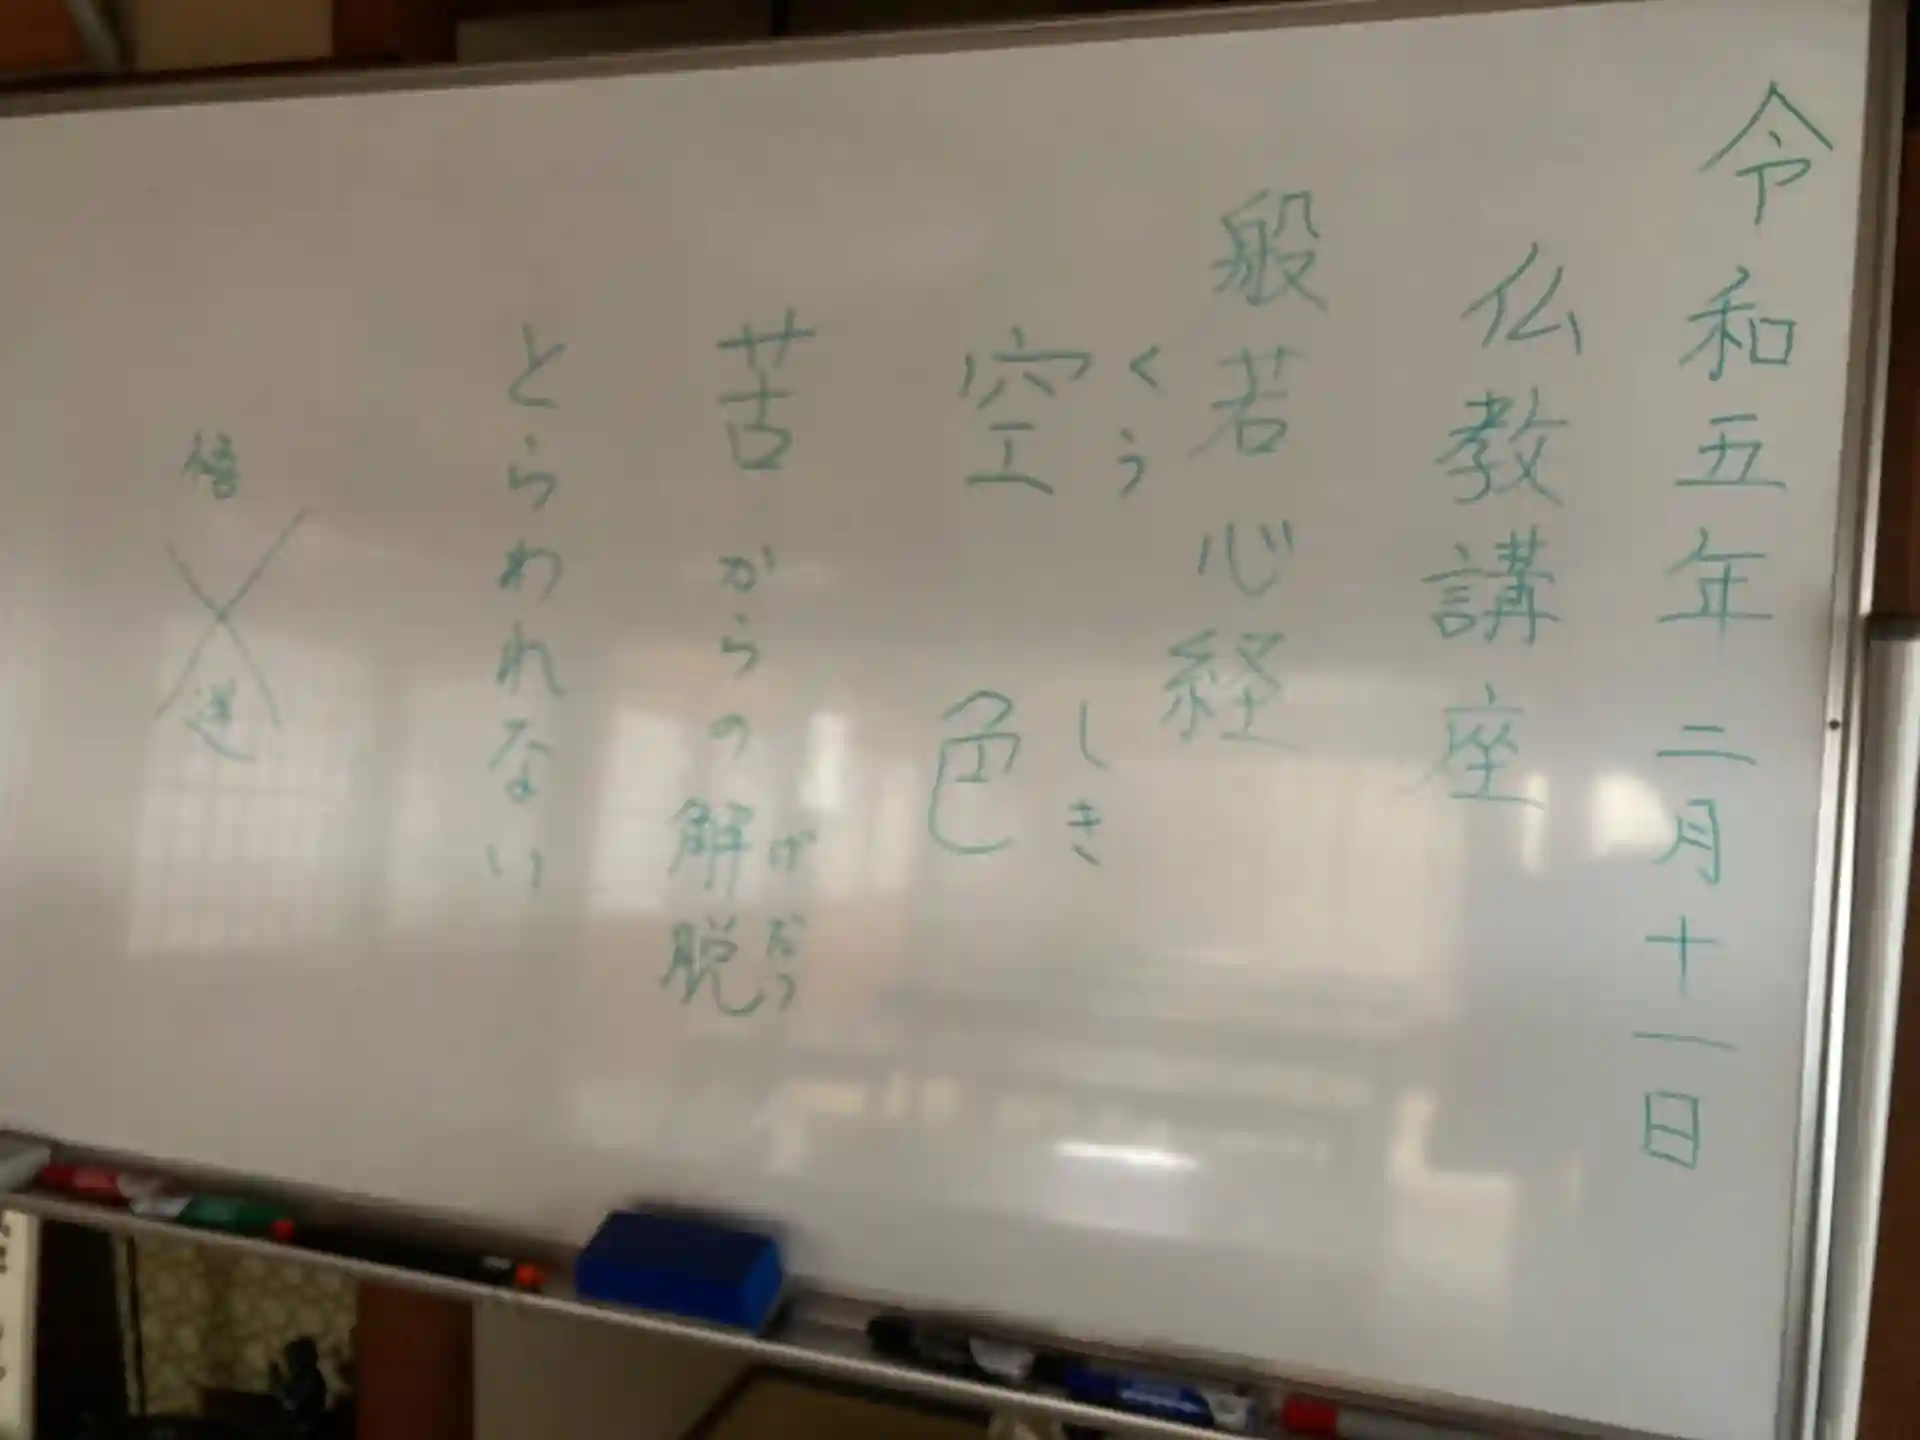 令和五年二月十一日
仏教講座
般若心経
くう しき
空 色
苦からの解脱
げだつ
とらわれない
倍
送